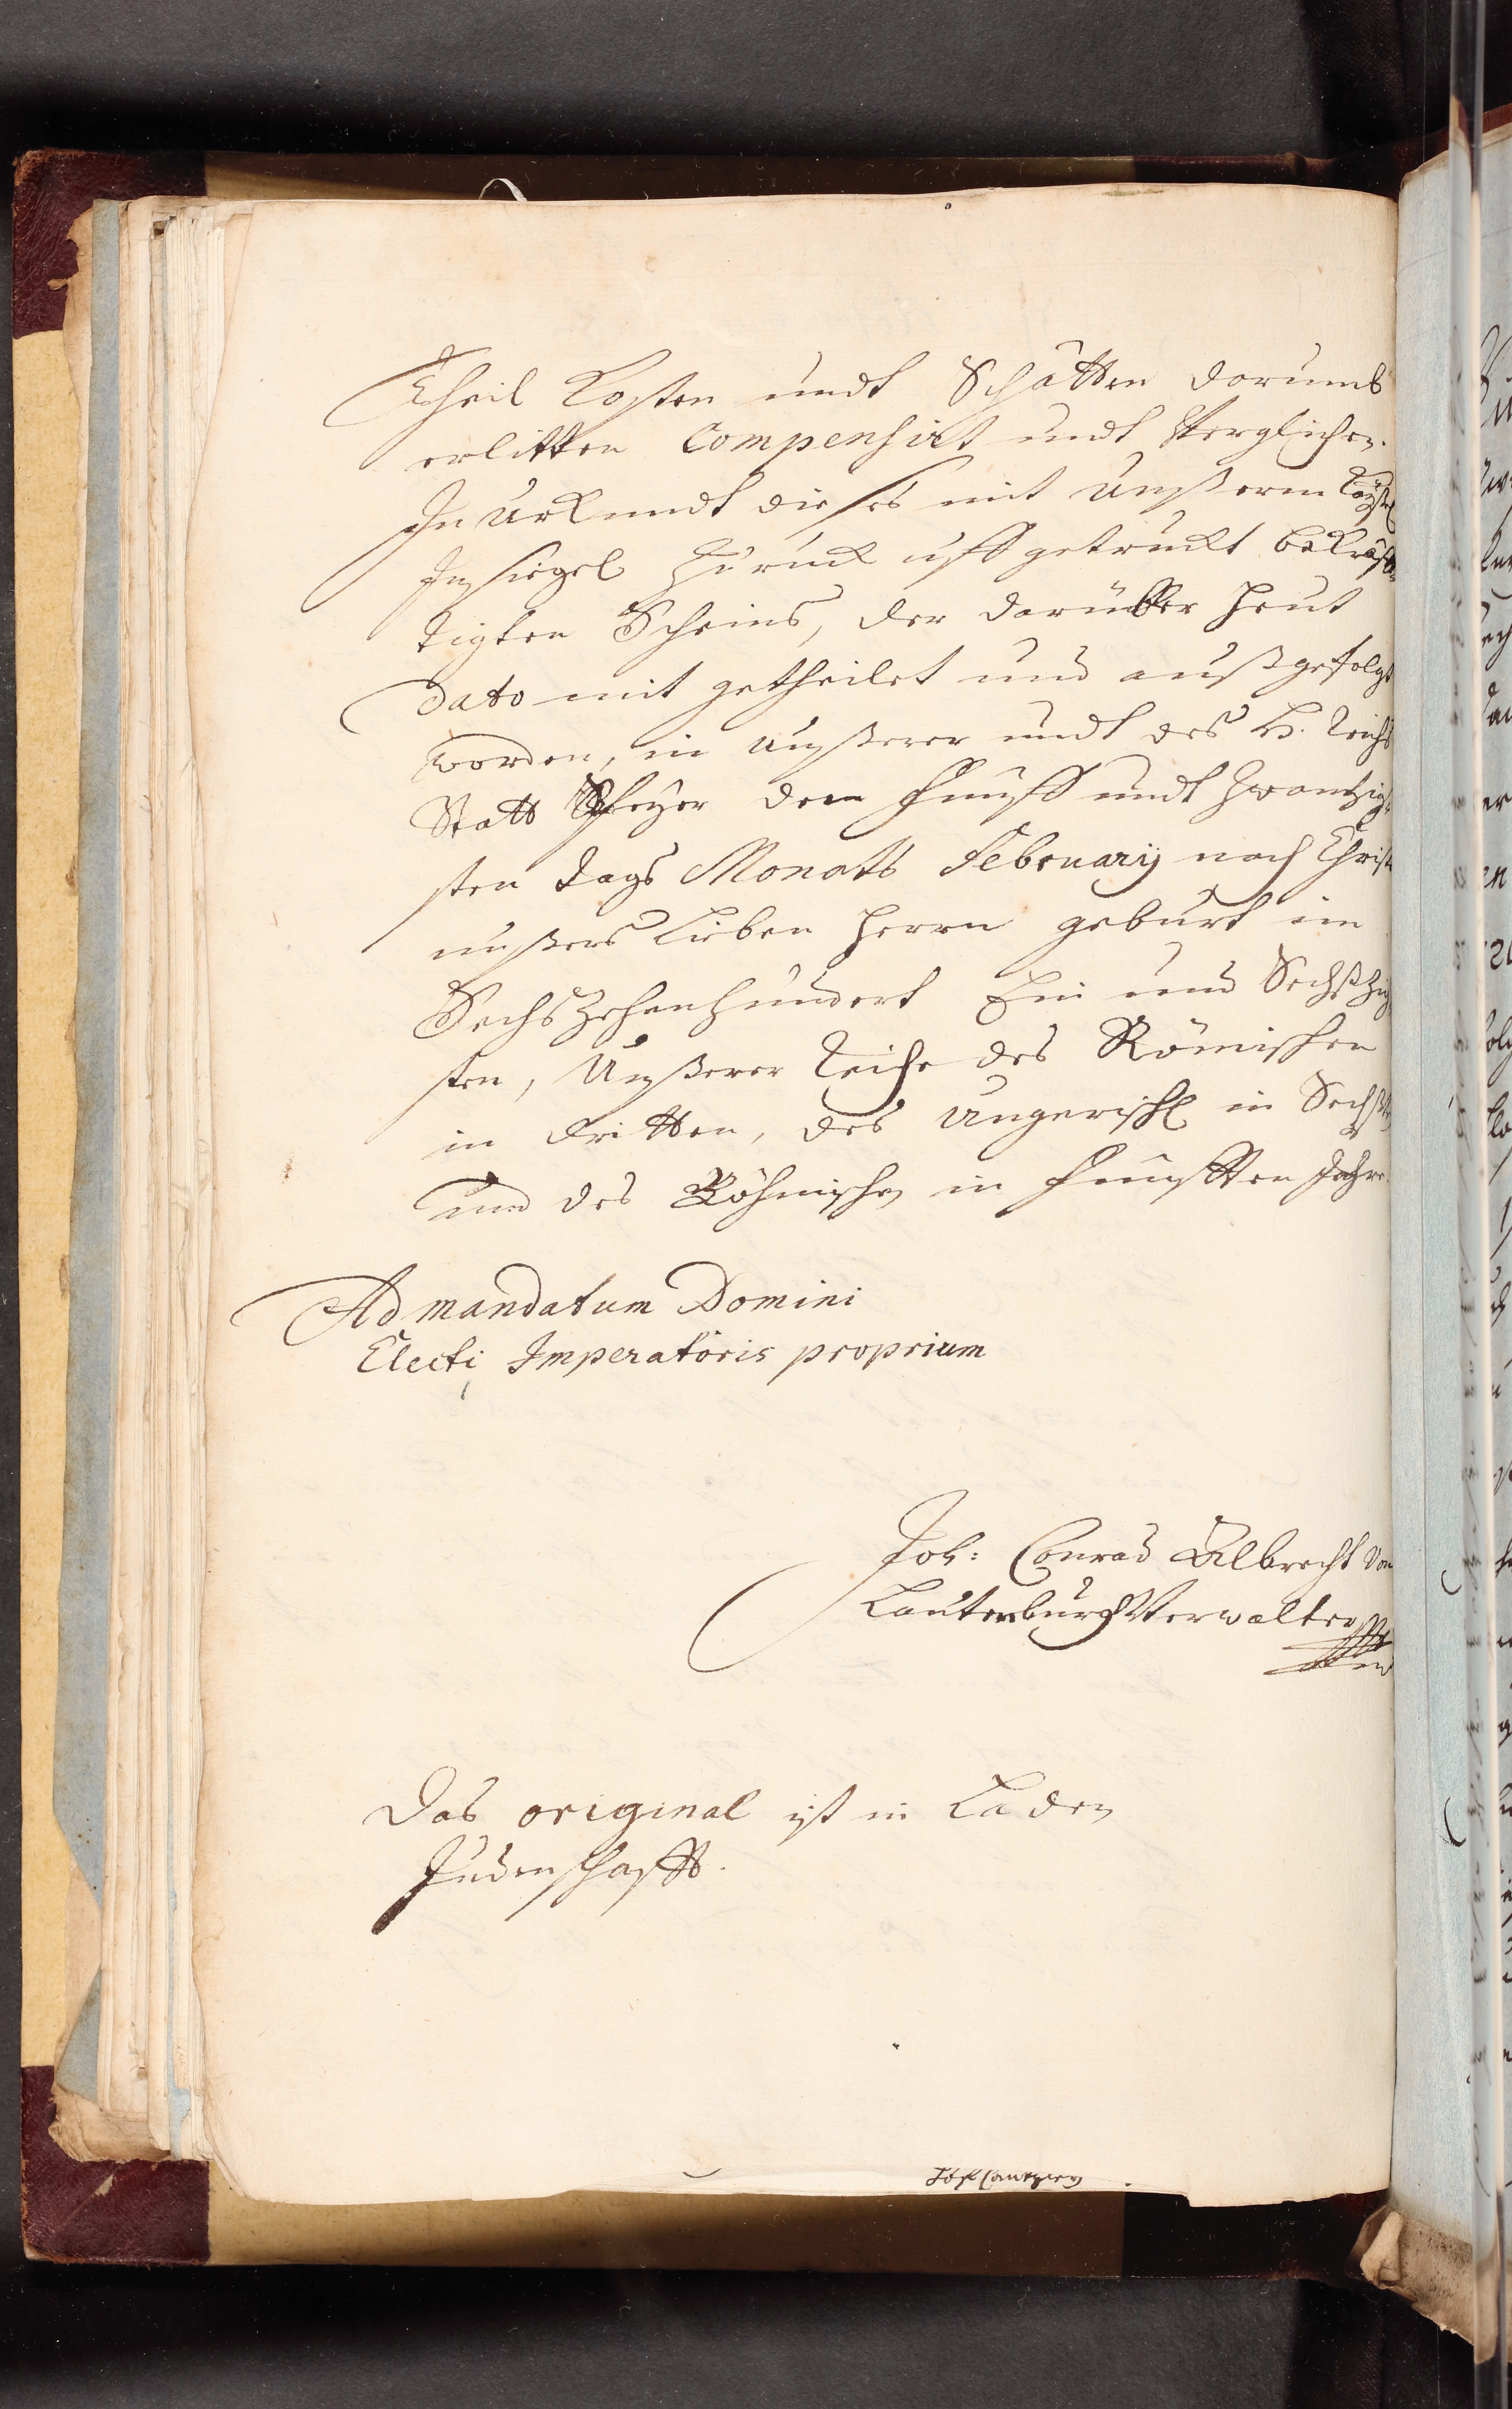 Theil Kosten undt Schätten darumb
erlitten Compensirt undt Verglichen.
In Urkundt dießes mit Unßerem Kayßl
Insiegel zuruck uff getruckt bekräff=
tigten Scheins, der darüber heut
Dato mit getheilet und außgefolgt
worden, in Unßerer undt des H. Reichs
Statt Speyer den Fünff undt zwantzig=
sten Tags Monats February nach Christi
unßers Lieben Herrn geburt im
Sechszehenhundert Ein und Sechßzig
sten, Unßerer Reiche des Römischen
in dritten, des Ungerischl in Sechsten
und des Böhmischen in Fünfften Jahre.
Ad mandatum Domini
Electi Imperatoris proprium
Joh: Conrad Albrecht von
Lautenburg Verwalter
Das original ist in Laden
Judenschafft.